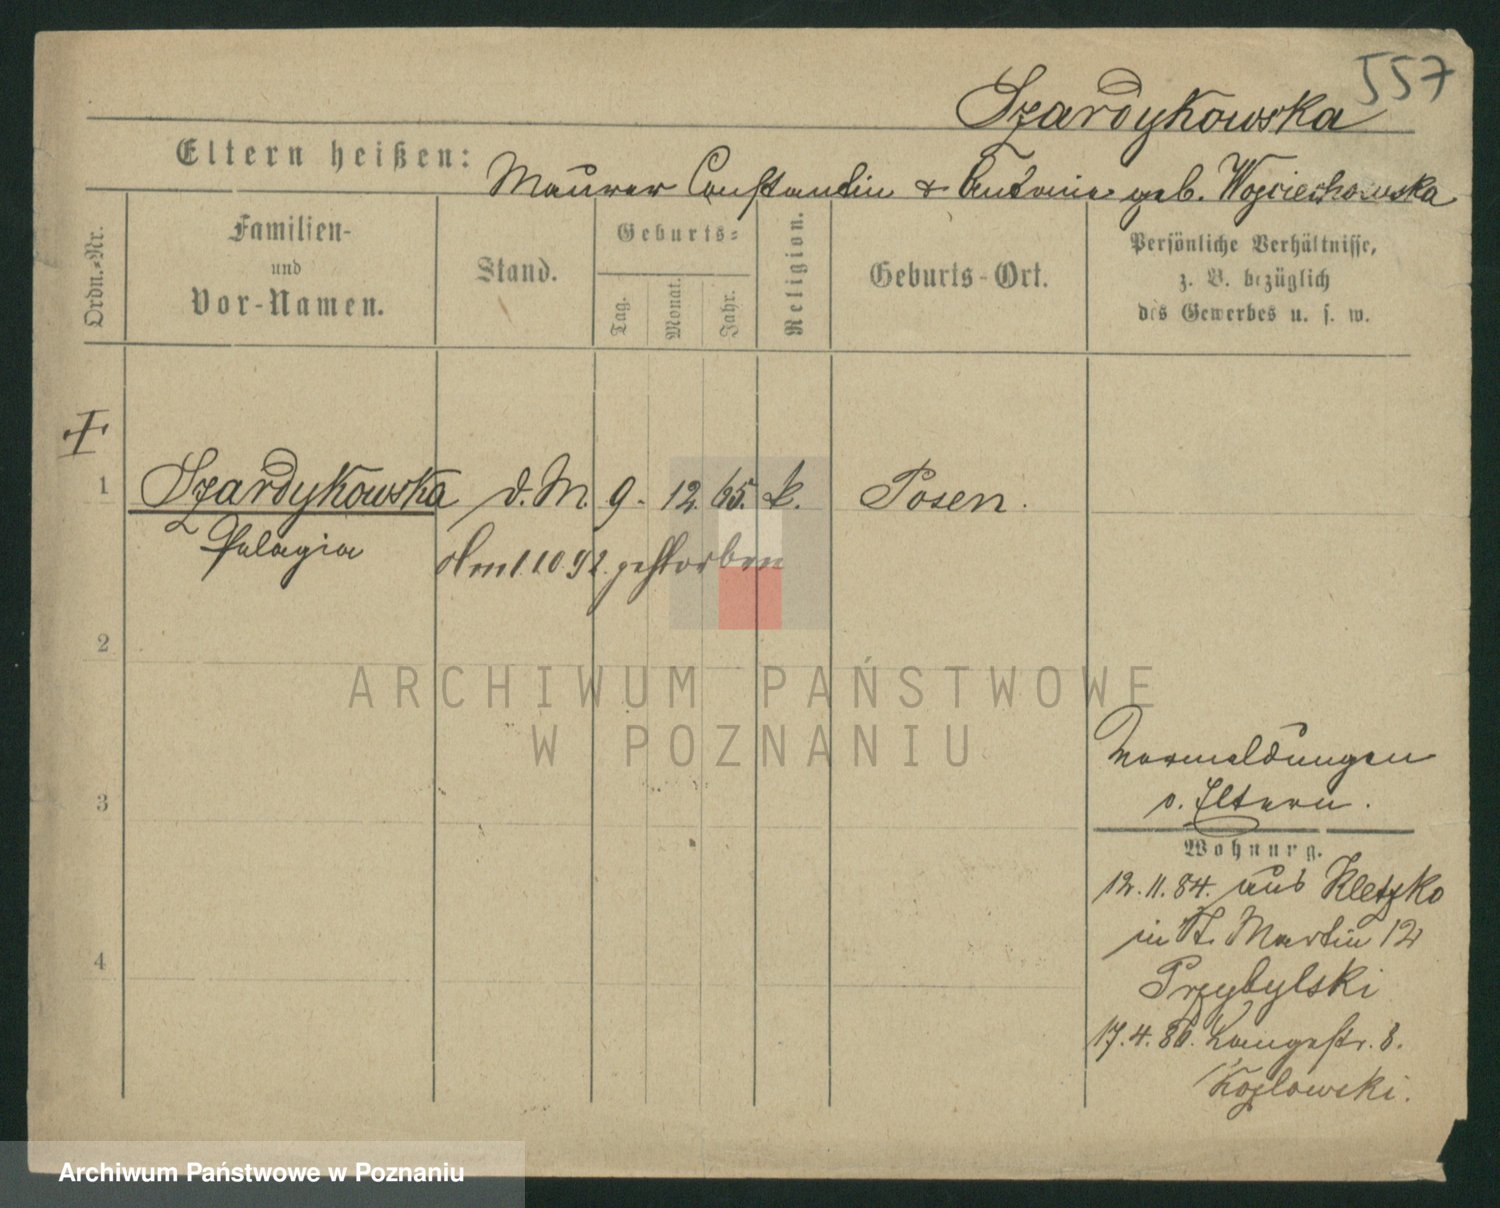 557
Szardykowska
Eltern heißen: Maurer Constantin & Antonie geb. Wojciechowska
Ordn.-Nr.
Familien-
und
Vor-Namen.
Stand.
Geburts-
Tag.
Monat.
Jahr.
Religion.
Geburts-Ort.
Persönliche Verhältnisse,
z. B. bezüglich
des Gewerbes u. s. w.
1 Szardykowska d. M. 9. 12. 65. k. Posen.
Pelagia
Am 1.10.92. gestorben
2
ARCHIWUM PAŃSTWOWE
W POZNANIU
3
4
Vormeldungen
s. Eltern.
Wohnung.
12.11.84. aus Kletzko
in St. Martin 12
Przybylski
17.4.86. Langestr. 8.
Kozlowski.
Archiwum Państwowe w Poznaniu